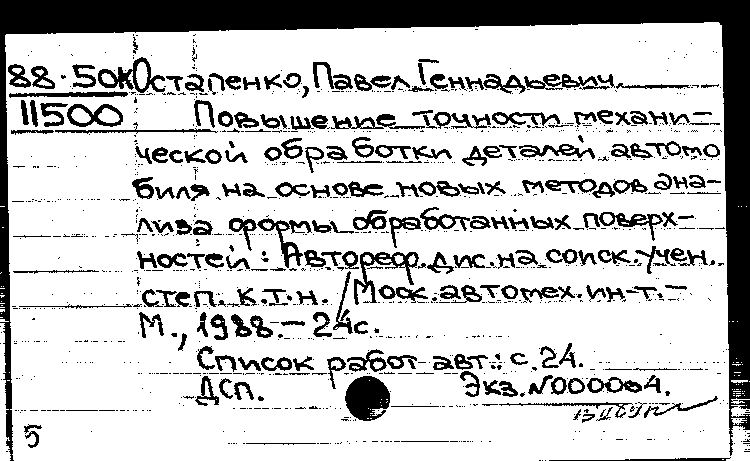 88-50к Остапенко, Павел Геннадьевич.
11500 Повышение точности механи-
ческой обработки деталей автомо
биля на основе новых методов ана-
лиза формы обработанных поверх-
ностей : Автореф. дис. на соиск. учен.
степ. к.т.н. / Моск. автомех. ин-т. -
М., 1988. - 24с.
Список работ авт.: с. 24.
ДСП. Экз. N000064.
5